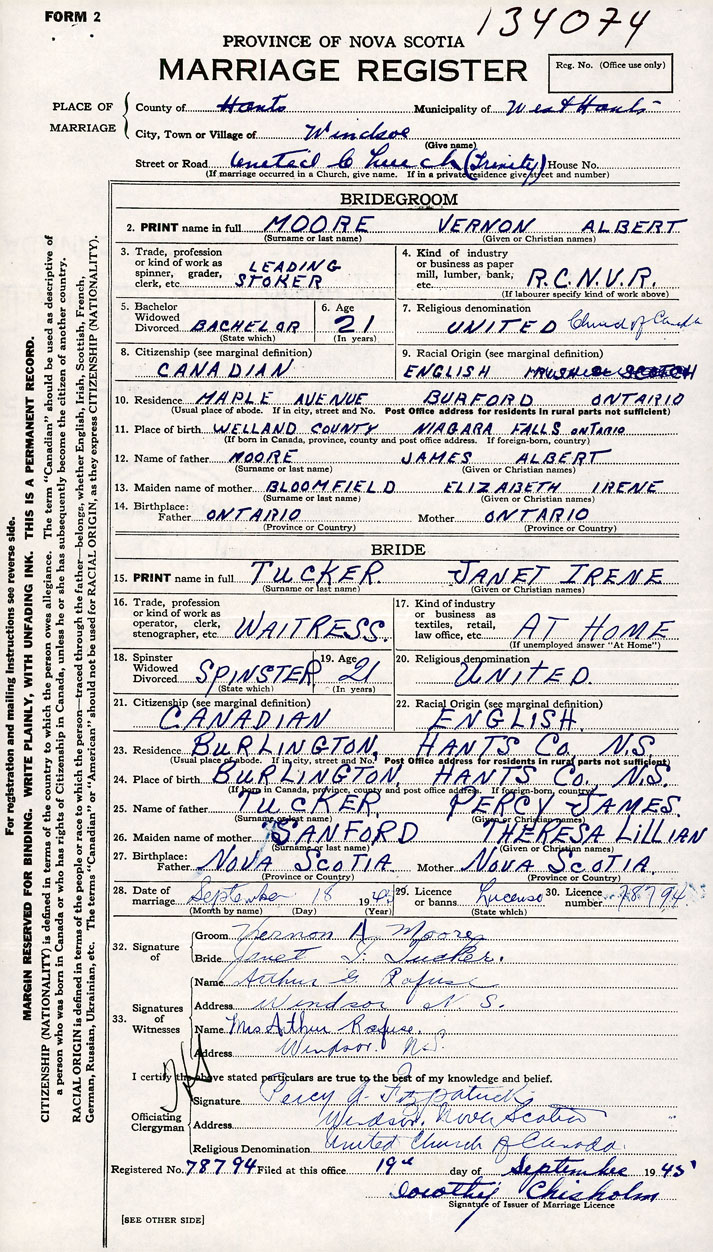 FORM 2
134074
PROVINCE OF NOVA SCOTIA
MARRIAGE REGISTER
Reg. No. (Office use only)
PLACE OF MARRIAGE
County of Hants Municipality of West Hants
City, Town or Village of Windsor
(Give name)
Street or Road United Church (Trinity) House No.
(If marriage occurred in a Church, give name. If in a private residence give street and number)
BRIDEGROOM
2. PRINT name in full MOORE VERNON ALBERT
(Surname or last name) (Given or Christian names)
3. Trade, profession or kind of work as spinner, grader, clerk, etc. LEADING STOKER
4. Kind of industry or business as paper mill, lumber, bank, etc. R.C.N.V.R.
(If labourer specify kind of work above)
5. Bachelor Widowed Divorced BACHELOR
(State which)
6. Age 21
(In years)
7. Religious denomination UNITED Church of Canada
8. Citizenship (see marginal definition) CANADIAN
9. Racial Origin (see marginal definition) ENGLISH
10. Residence MAPLE AVENUE BURFORD ONTARIO
(Usual place of abode. If in city, street and No. Post Office address for residents in rural parts not sufficient)
11. Place of birth WELLAND COUNTY NIAGARA FALLS ONTARIO
(If born in Canada, province, county and post office address. If foreign-born, country)
12. Name of father MOORE JAMES ALBERT
(Surname or last name) (Given or Christian names)
13. Maiden name of mother BLOOMFIELD ELIZABETH IRENE
(Surname or last name) (Given or Christian names)
14. Birthplace: Father ONTARIO Mother ONTARIO
(Province or Country) (Province or Country)
BRIDE
15. PRINT name in full TUCKER JANET IRENE
(Surname or last name) (Given or Christian names)
16. Trade, profession or kind of work as operator, clerk, stenographer, etc. WAITRESS.
17. Kind of industry or business as textiles, retail, law office, etc. AT HOME
(If unemployed answer "At Home")
18. Spinster Widowed Divorced SPINSTER
(State which)
19. Age 21
(In years)
20. Religious denomination UNITED.
21. Citizenship (see marginal definition) CANADIAN
22. Racial Origin (see marginal definition) ENGLISH
23. Residence BURLINGTON, HANTS Co. N.S.
(Usual place of abode. If in city, street and No. Post Office address for residents in rural parts not sufficient)
24. Place of birth BURLINGTON, HANTS Co. N.S.
(If born in Canada, province, county and post office address. If foreign-born, country)
25. Name of father TUCKER PERCY JAMES.
(Surname or last name) (Given or Christian names)
26. Maiden name of mother SANFORD THERESA LILLIAN
(Surname or last name) (Given or Christian names)
27. Birthplace: Father NOVA SCOTIA Mother NOVA SCOTIA.
(Province or Country) (Province or Country)
28. Date of marriage September 18 1945
(Month by name) (Day) (Year)
29. Licence or banns License
(State which)
30. Licence number 78794
32. Signature of
Groom Vernon A. Moore
Bride Janet I. Tucker.
33. Signatures of Witnesses
Name Arthur G. Rafuse
Address Windsor N.S.
Name Mrs Arthur Rafuse.
Address Windsor. N.S.
I certify the above stated particulars are true to the best of my knowledge and belief.
Officiating Clergyman
Signature Percy A. Fitzpatrick
Address Windsor, Nova Scotia
Religious Denomination United Church of Canada.
Registered No. 78794 Filed at this office 19th day of September 1945
Dorothy Chisholm
Signature of Issuer of Marriage Licence
[SEE OTHER SIDE]
For registration and mailing instructions see reverse side.
MARGIN RESERVED FOR BINDING. WRITE PLAINLY, WITH UNFADING INK. THIS IS A PERMANENT RECORD.
CITIZENSHIP (NATIONALITY) is defined in terms of the country to which the person owes allegiance. The term "Canadian" should be used as descriptive of
a person who was born in Canada or who has rights of Citizenship in Canada, unless he or she has subsequently become the citizen of another country.
RACIAL ORIGIN is defined in terms of the people or race to which the person—traced through the father—belongs, whether English, Irish, Scottish, French,
German, Russian, Ukrainian, etc. The terms "Canadian" or "American" should not be used for RACIAL ORIGIN, as they express CITIZENSHIP (NATIONALITY).